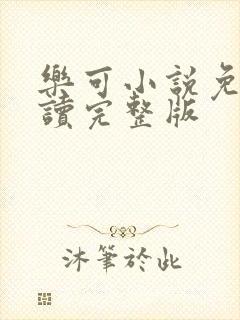 樂可小說免
讀完整版
沐筆於此